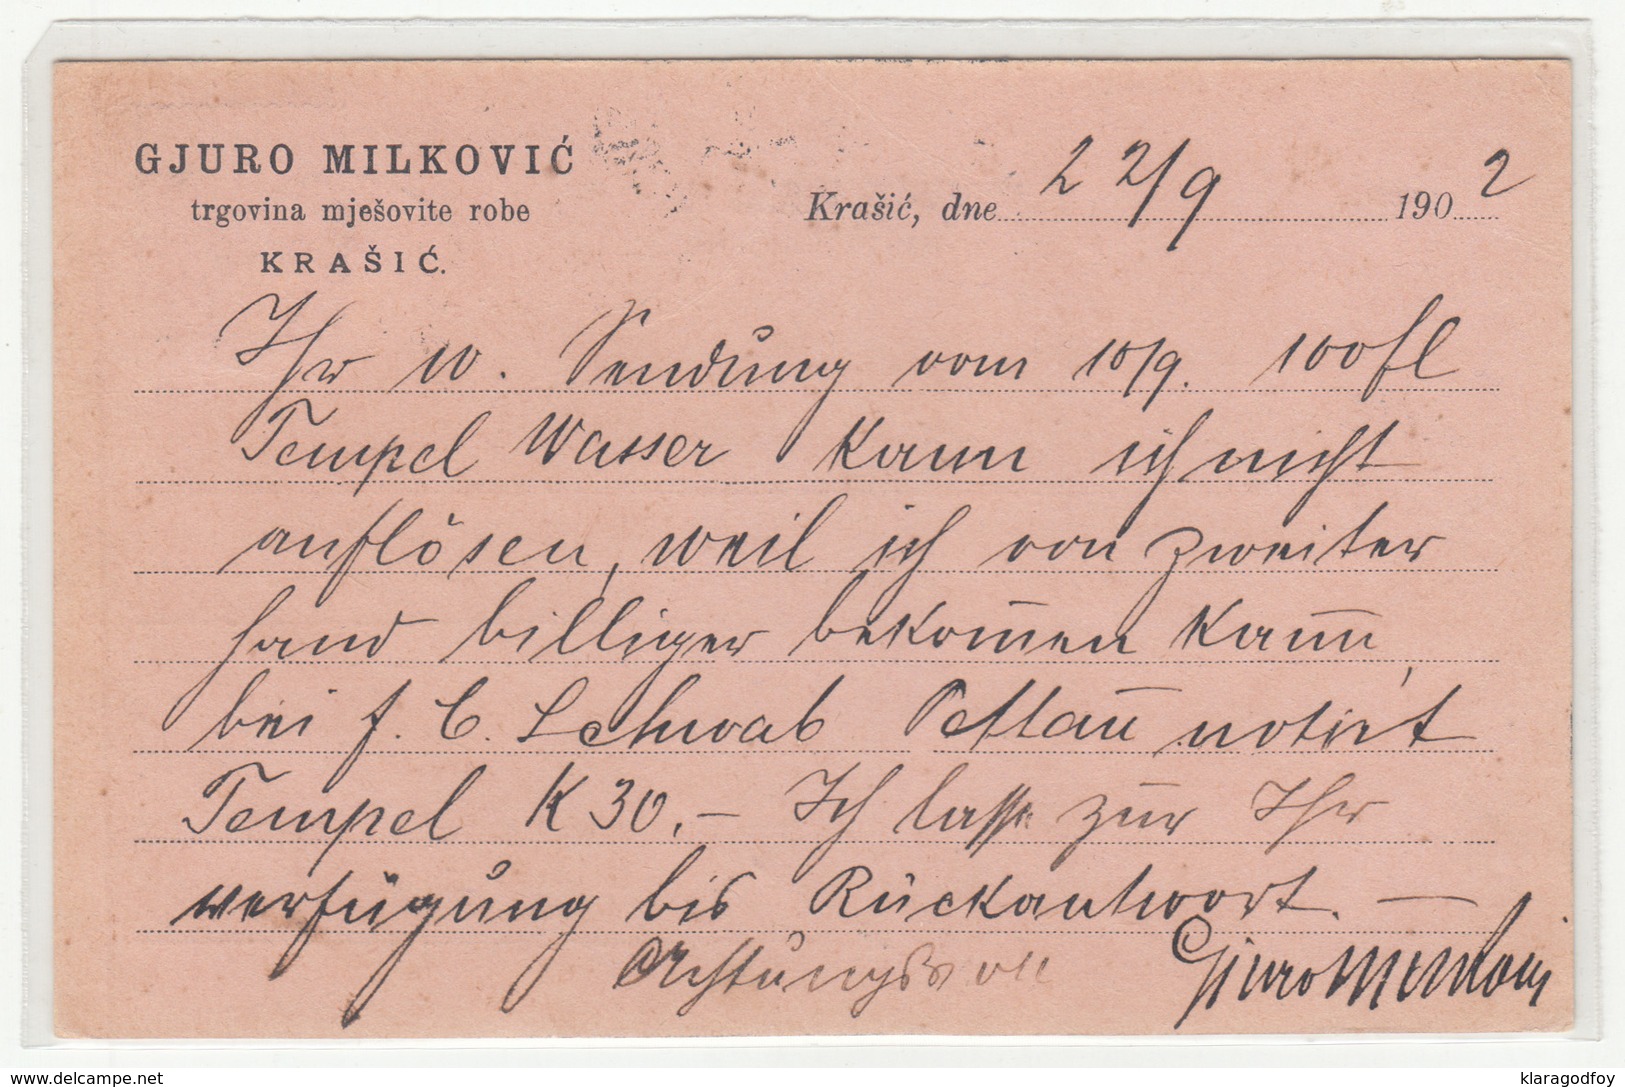 GJURO MILKOVIĆ
trgovina mješovite robe
KRAŠIĆ.
Krašić, dne 22/9 1902
Ihr w. Sendung vom 10/9. 100 fl
Tempel Wasser kann ich nicht
auflösen, weil ich von zweiter
hand billiger bekom̅en kan̅,
bei J. C. Schwab Pettau notirt
Tempel K 30.– Ich lasse zur Ihr
verfügung bis Rückantwort. —
Achtungsvoll
Gjuro Milković
klaragodfoy
http://www.delcampe.net